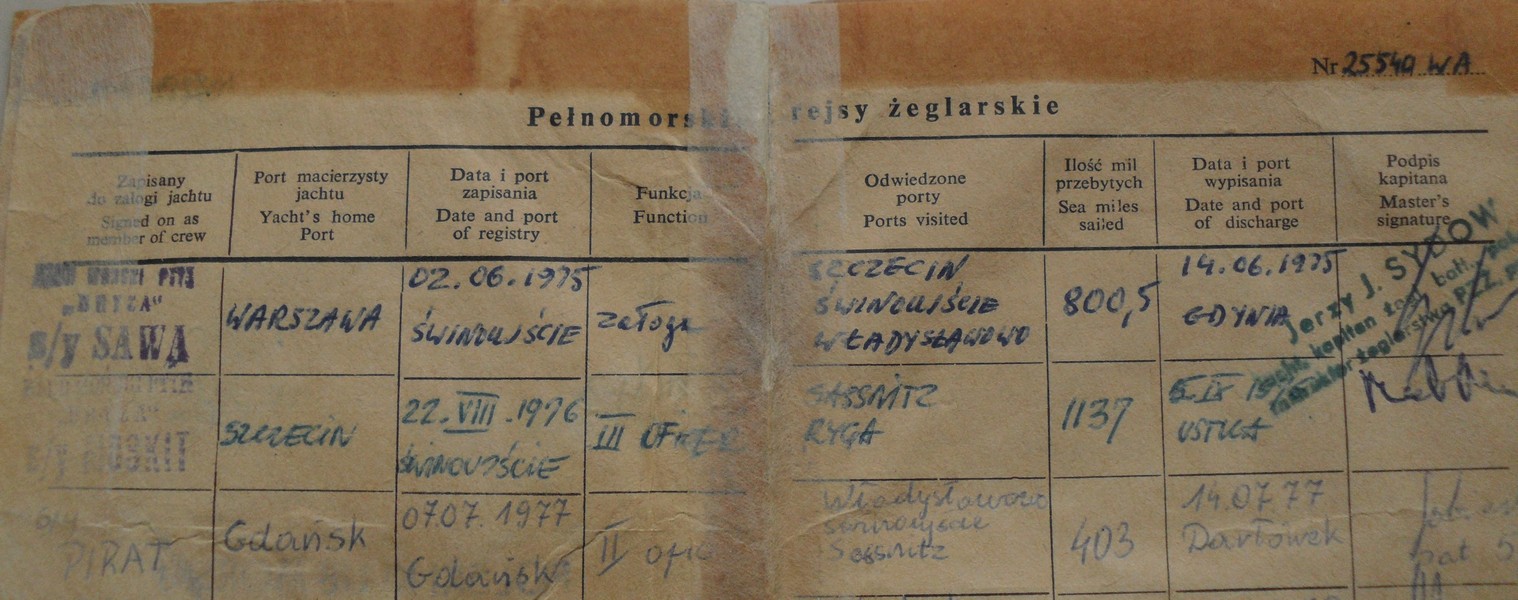 Nr 25540 WA
Pełnomorskie rejsy żeglarskie
Zapisany
do załogi jachtu
Signed on as
member of crew
Port macierzysty
jachtu
Yacht's home
Port
Data i port
zapisania
Date and port
of registry
Funkcja
Function
Odwiedzone
porty
Ports visited
Ilość mil
przebytych
Sea miles
sailed
Data i port
wypisania
Date and port
of discharge
Podpis
kapitana
Master's
signature
"BRYZA"
s/y SAWA
WARSZAWA
02.06.1975
ŚWINOUJŚCIE
załoga
SZCZECIN
ŚWINOUJŚCIE
WŁADYSŁAWOWO
800,5
14.06.1975
GDYNIA
Jerzy J. SYDOW
kapitan żegl. bałt.
żeglarstwa PZŻ
SZCZECIN
22.VIII.1976
ŚWINOUJŚCIE
III OFICER
SASSNITZ
RYGA
1137
5.IX
USTKA
PIRAT
Gdańsk
07.07.1977
Gdańsk
II ofic
Władysławowo
Świnoujście
Sassnitz
403
14.07.77
Darłówek